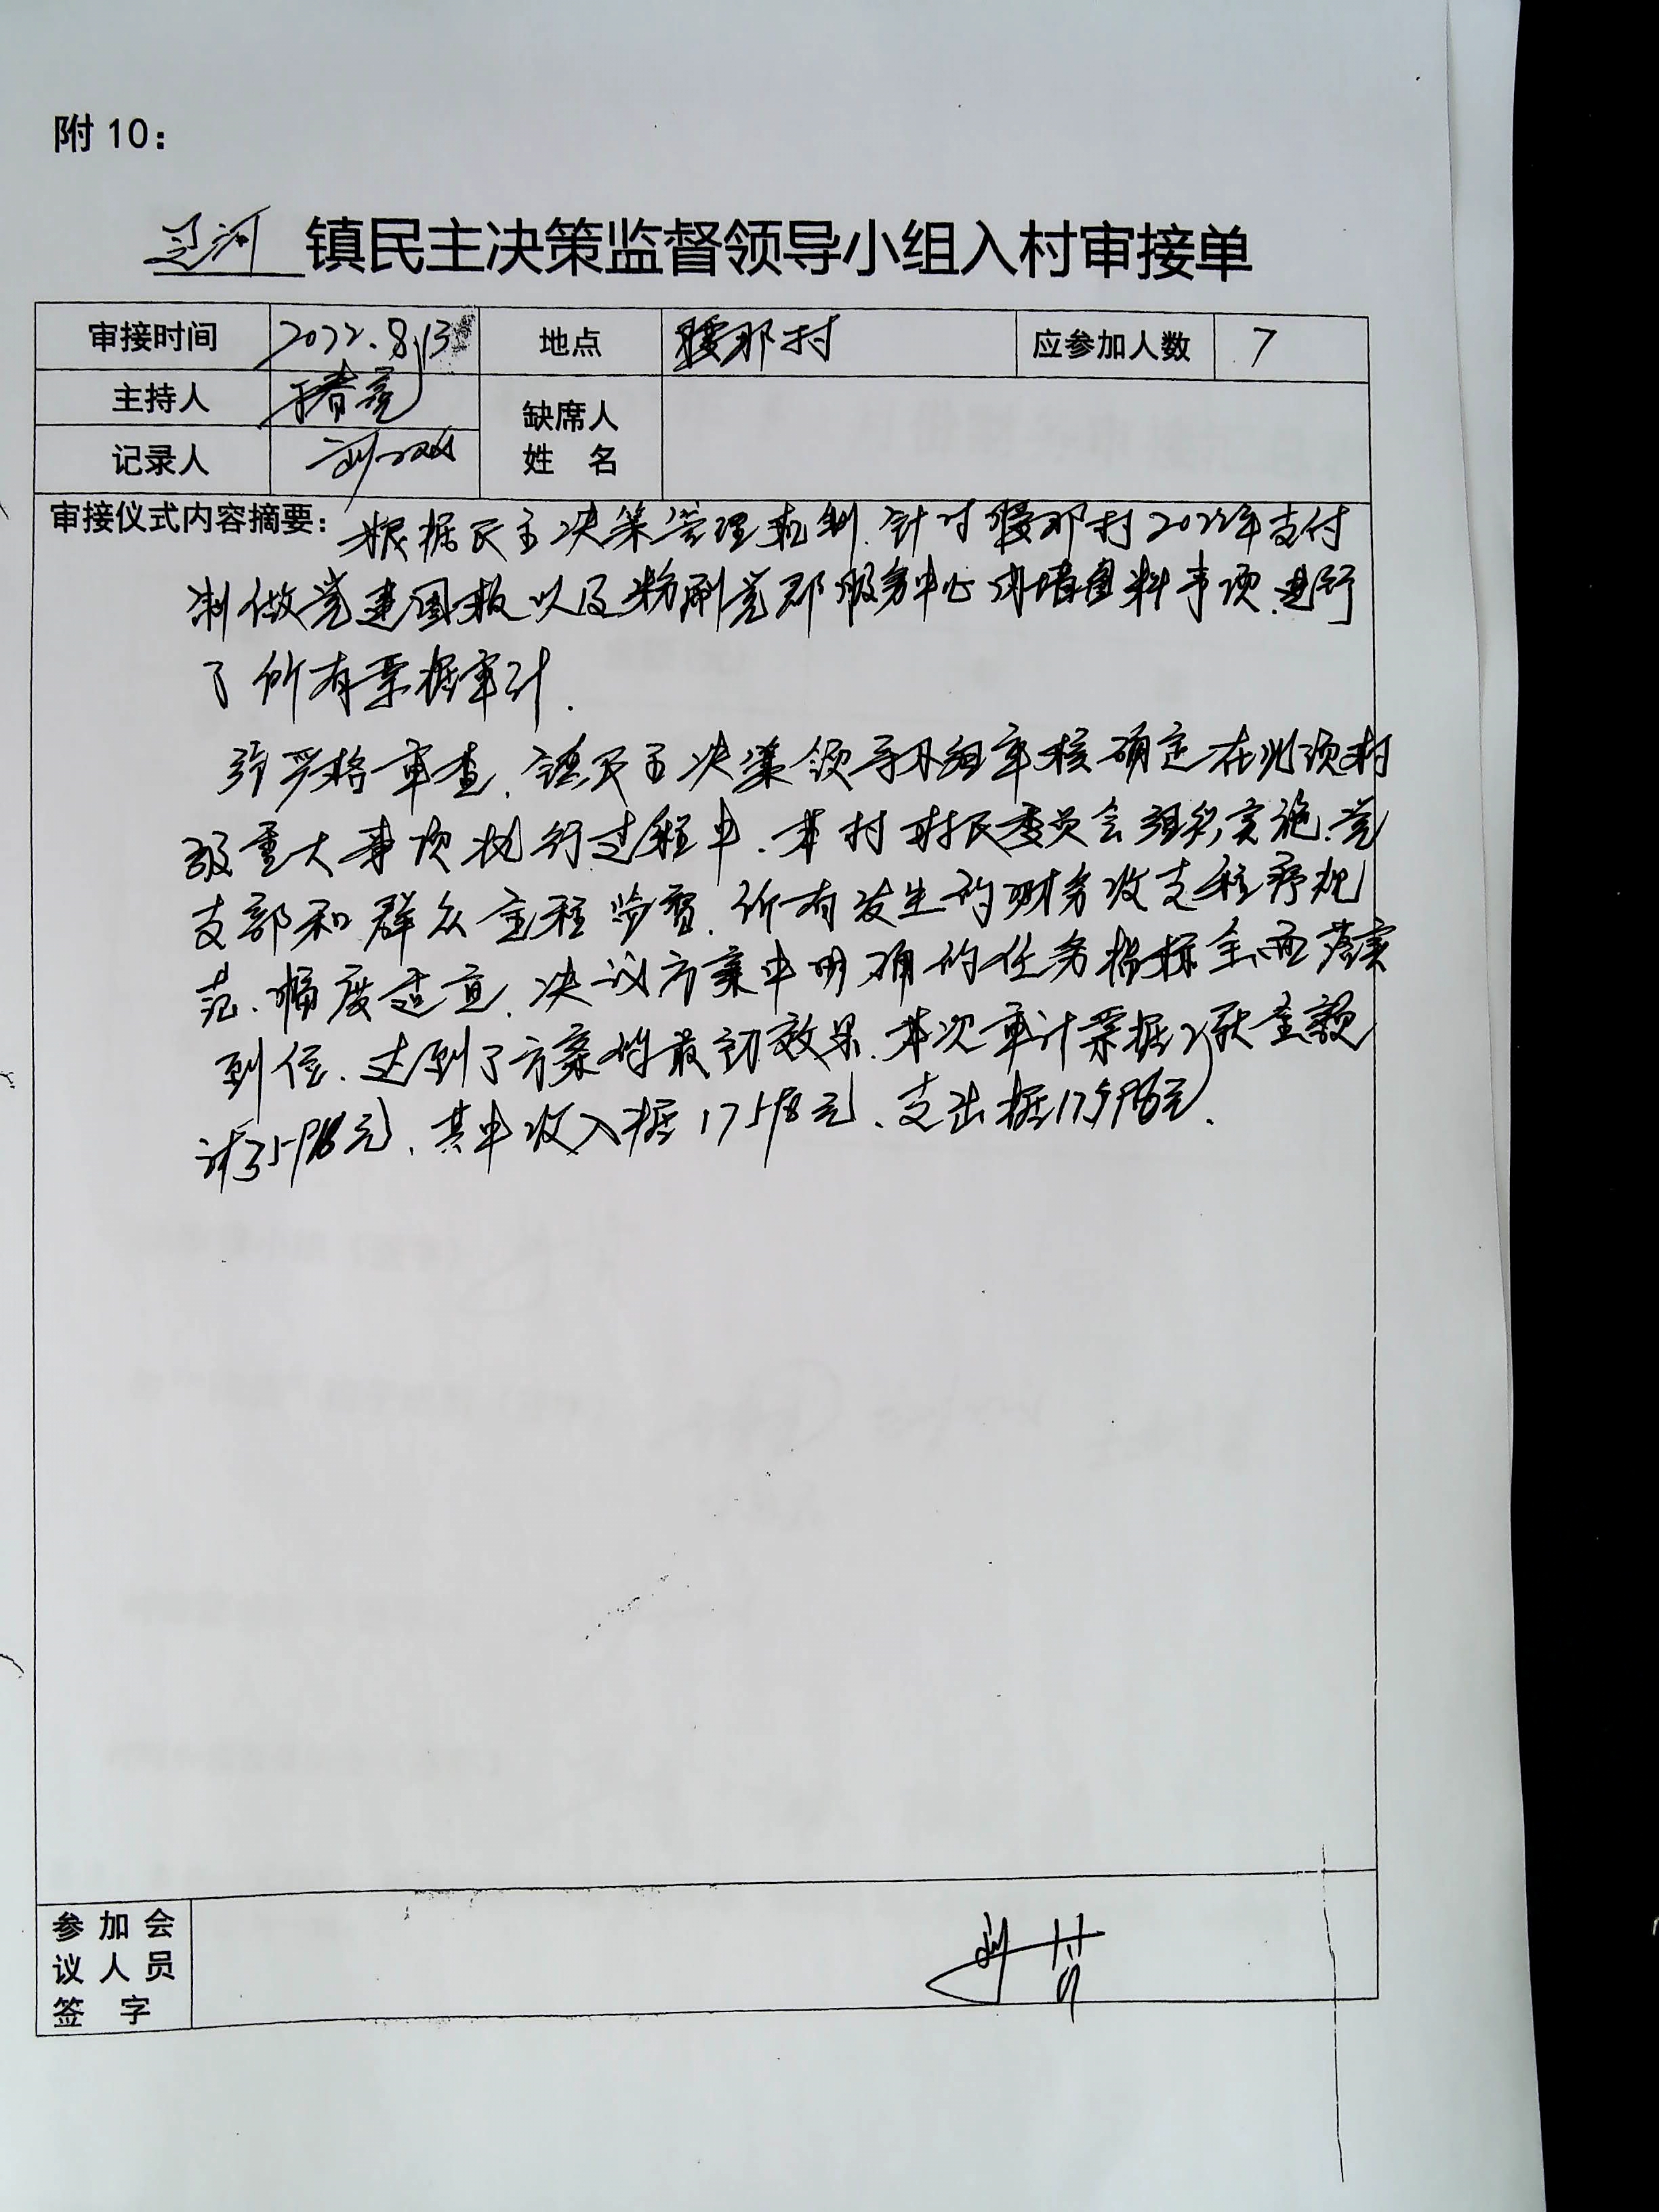 附 10：
辽河 镇民主决策监督领导小组入村审接单
审接时间 2022.8.13 地点 腰那村 应参加人数 7
主持人 缺席人
记录人 姓 名
审接仪式内容摘要： 根据民主决策管理机制.针对腰那村2022年支付
制做党建图板以及粉刷党群服务中心 料事项.进行
了所有票据审计.
严格审查.镇民主决策领导小组审核确定在此项村
级重大事项执行过程中.本村村民委员会组织实施.党
支部和群众全程监督.所有发生的财务收支程序规
范.幅度适宜.决议方案中明确的任务指标全面落实
到位.达到了方案 最初效果.本次审计票据 金额
计 元.其中收入据17598元、支出据17598元.
参 加 会
议 人 员
签 字